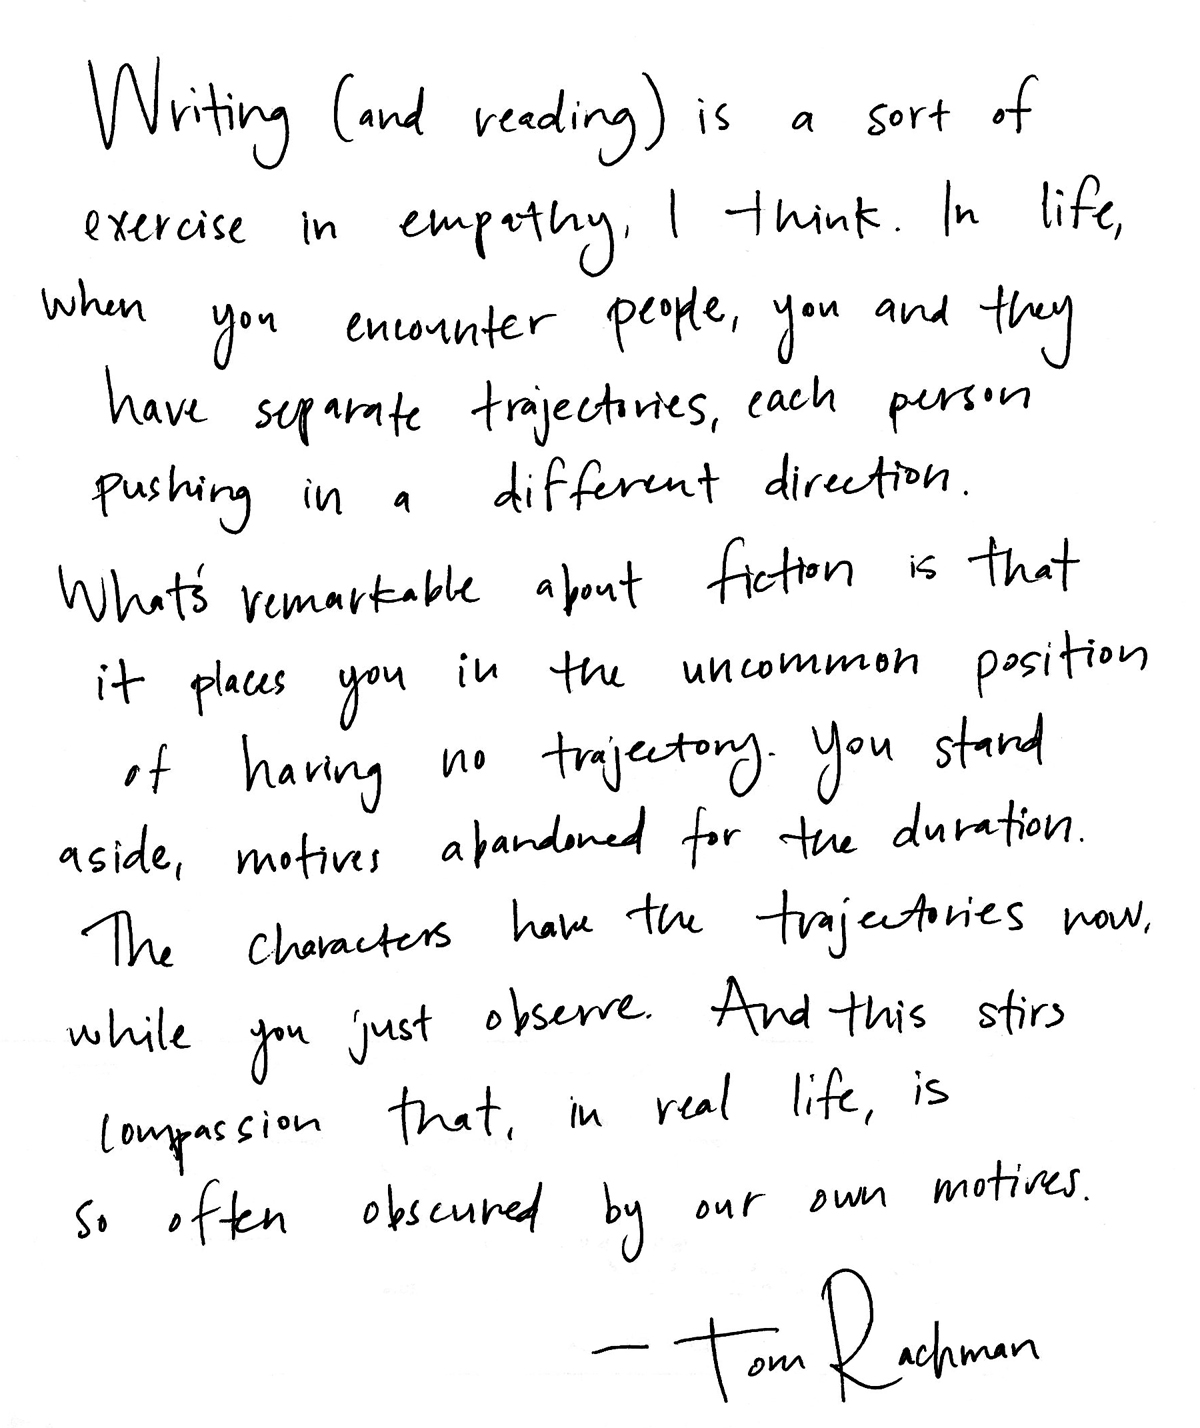 Writing (and reading) is a sort of
exercise in empathy, I think. In life,
when you encounter people, you and they
have separate trajectories, each person
pushing in a different direction.
What's remarkable about fiction is that
it places you in the uncommon position
of having no trajectory. You stand
aside, motives abandoned for the duration.
The characters have the trajectories now,
while you just observe. And this stirs
compassion that, in real life, is
so often obscured by our own motives.
— Tom Rachman